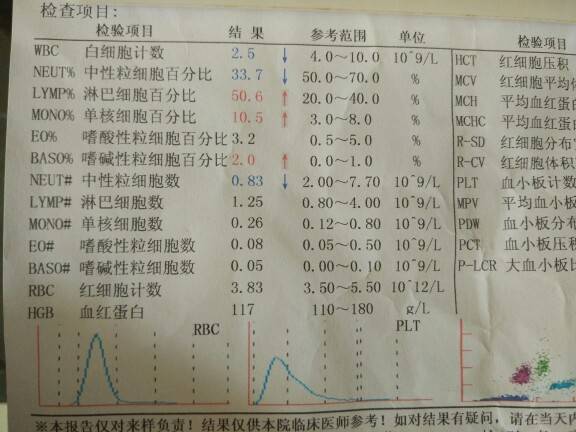 检查项目:
检验项目 结 果 参考范围 单位 检验项目
WBC 白细胞计数 2.5 ↓ 4.0～10.0 10^9/L HCT 红细胞压积
NEUT% 中性粒细胞百分比 33.7 ↓ 50.0～70.0 % MCV 红细胞平均体
LYMP% 淋巴细胞百分比 50.6 ↑ 20.0～40.0 % MCH 平均血红蛋
MONO% 单核细胞百分比 10.5 ↑ 3.0～8.0 % MCHC 平均血红蛋白
EO% 嗜酸性粒细胞百分比 3.2 0.5～5.0 % R-SD 红细胞分布
BASO% 嗜碱性粒细胞百分比 2.0 ↑ 0.0～1.0 % R-CV 红细胞体积
NEUT# 中性粒细胞数 0.83 ↓ 2.00～7.70 10^9/L PLT 血小板计数
LYMP# 淋巴细胞数 1.25 0.80～4.00 10^9/L MPV 平均血小板
MONO# 单核细胞数 0.26 0.12～0.80 10^9/L PDW 血小板分布
EO# 嗜酸性粒细胞数 0.08 0.05～0.50 10^9/L PCT 血小板压积
BASO# 嗜碱性粒细胞数 0.05 0.00～0.10 10^9/L P-LCR 大血小板比
RBC 红细胞计数 3.83 3.50～5.50 10^12/L
HGB 血红蛋白 117 110～180 g/L
RBC PLT
※本报告仅对来样负责！结果仅供本院临床医师参考！如对结果有疑问，请在当天内